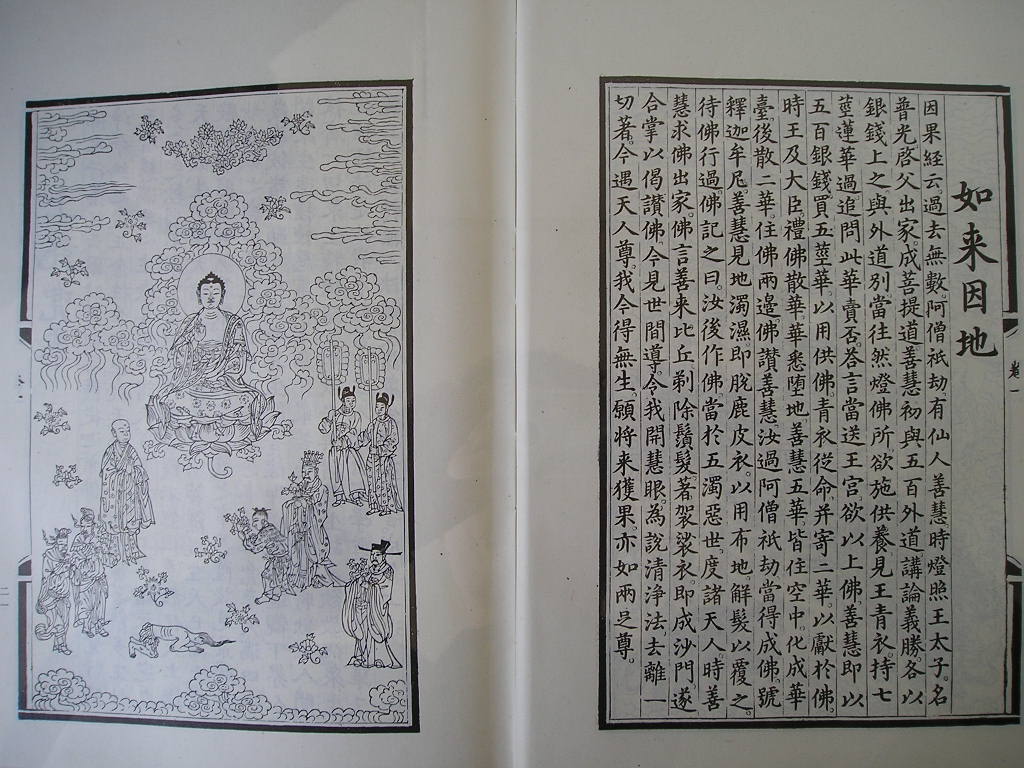 如来因地
因果經云。過去無數阿僧祇劫。有仙人善慧。時燈照王太子。名
普光。啓父出家。成菩提道。善慧初與五百外道講論義勝。各以
銀錢上之。與外道別。當往然燈佛所。欲施供養。見王青衣。持七
莖蓮華過。追問此華賣否。荅言當送王宮。欲以上佛。善慧即以
五百銀錢。買五莖華。以用供佛。青衣從命。并寄二華。以獻於佛。
時王及大臣。禮佛散華。華悉墮地。善慧五華。皆住空中。化成華
臺。後散二華。住佛兩邊。佛讚善慧。汝過阿僧祇劫。當得成佛。號
釋迦牟尼。善慧見地濁濕。即脫鹿皮衣。以用布地。解髮以覆之。
待佛行過。佛記之曰。汝後作佛。當於五濁惡世。度諸天人。時善
慧求佛出家。佛言善来比丘。剃除鬚髮。著袈裟衣。即成沙門。遂
合掌以偈讚佛。今見世間導。令我開慧眼。為說清淨法。去離一
切著。今遇天人尊。我今得無生。願將来獲果。亦如兩足尊。
卷一